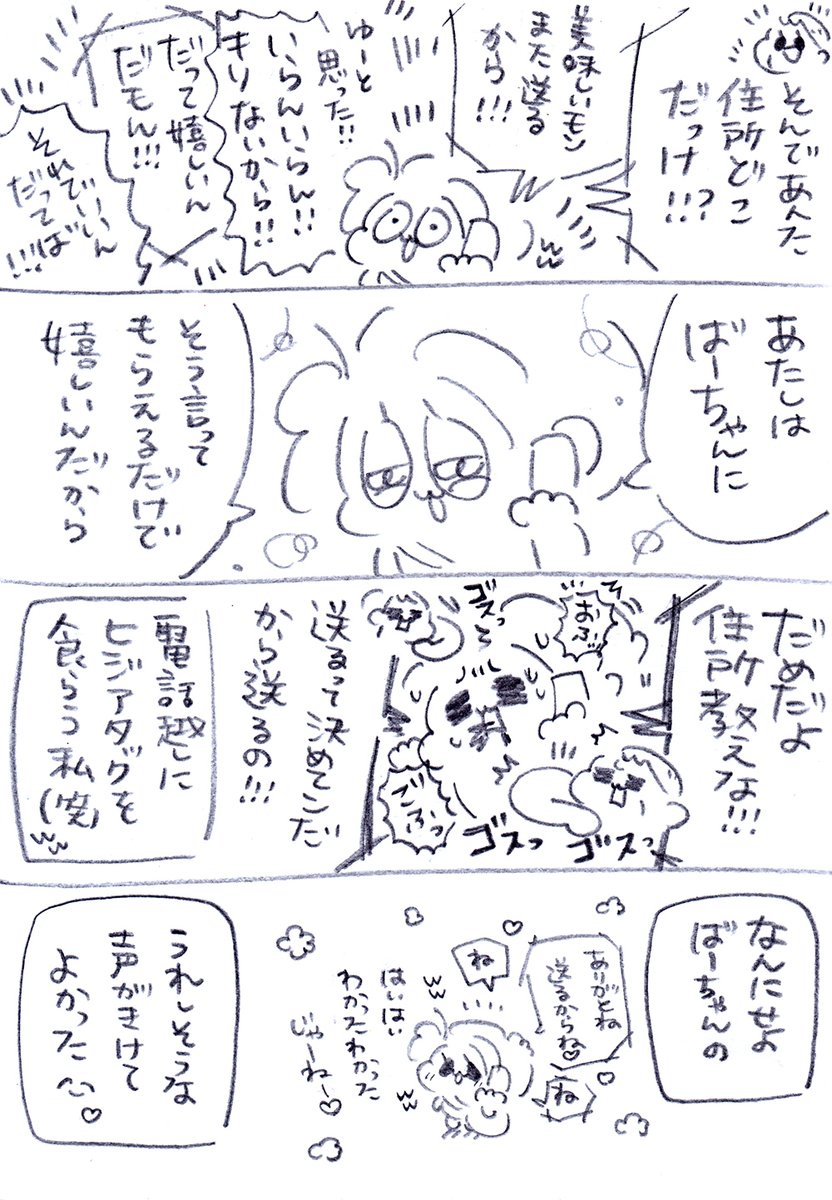 そんであんた
住所どこ
だっけ!!?
美味しいモン
また送る
から!!!
ゆーと
思った!!
いらんいらん!!
きりないから!!
だって嬉しいん
だもん!!!
それでいいん
だってば
!!!
あたしは
ばーちゃんに
そう言って
もらえるだけで
嬉しいんだから
だめだよ
住所教えな!!!
おふっ
ゴスっ
ごふっ
ゴスっ
ゴスっ
送るって決めてんだ
から送るの!!!
電話越しに
ヒジアタックを
食らう私(笑)
なんにせよ
ばーちゃんの
ありがとね
送るからね♡
ね
ね
はいはい
わかったわかった
じゃーねー♡
うれしそうな
声がきけて
よかった♡